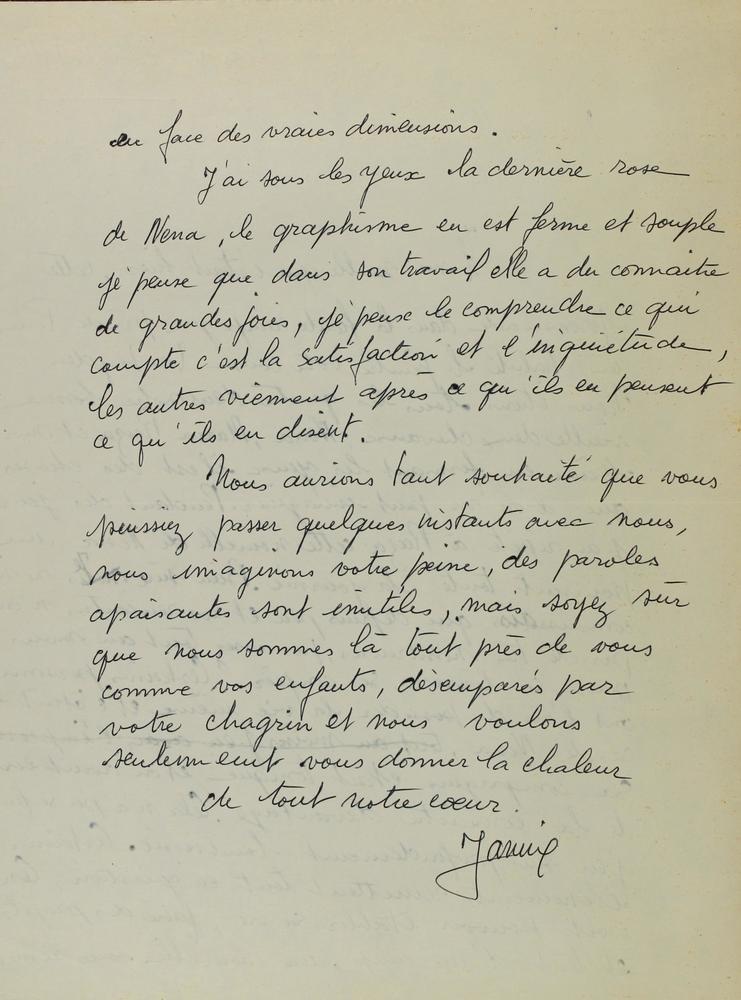 en face des vraies dimensions.
J'ai sous les yeux la dernière rose
de Nena, le graphisme en est ferme et souple
je pense que dans son travail elle a du connaitre
de grandes joies, je peux le comprendre ce qui
compte c'est la satisfaction et l'inquiétude,
les autres viennent après ce qu'ils en pensent
ce qu'ils en disent.
Nous aurions tant souhaité que vous
puissiez passer quelques instants avec nous,
nous imaginons votre peine, des paroles
apaisantes sont inutiles, mais soyez sûr
que nous sommes là tout près de vous
comme vos enfants, désemparés par
votre chagrin et nous voulons
seulement vous donner la chaleur
de tout notre cœur.